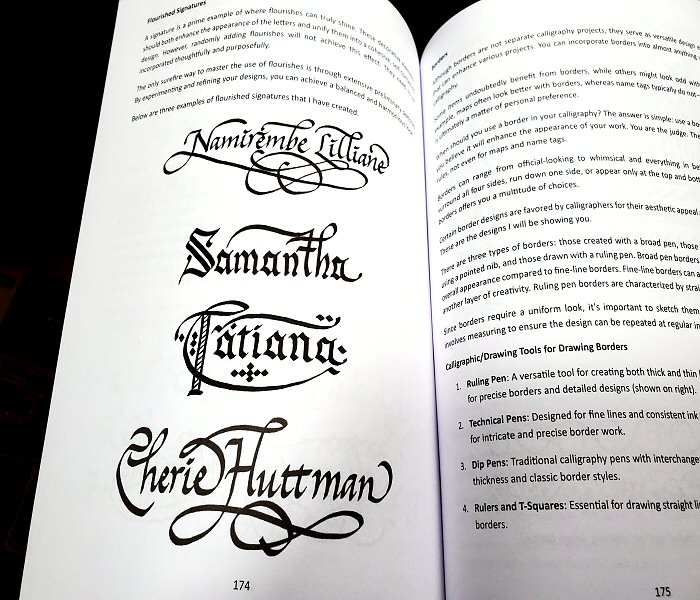 Flourished Signatures
A signature is a prime example of where flourishes can truly shine. These decorative
should both enhance the appearance of the letters and unify them into a cohesive
design. However, randomly adding flourishes will not achieve this effect. They
incorporated thoughtfully and purposefully.
The only surefire way to master the use of flourishes is through extensive preliminary
By experimenting and refining your designs, you can achieve a balanced and harmonious
Below are three examples of flourished signatures that I have created.
Namirembe Lilliane
Samantha
Tatiana
Cherie Huttman
174
Borders
Although borders are not separate calligraphy projects, they serve as versatile design
that can enhance various projects. You can incorporate borders into almost anything
calligraphy.
Some items undoubtedly benefit from borders, while others might look odd with
example, maps often look better with borders, whereas name tags typically do not—
ultimately a matter of personal preference.
When should you use a border in your calligraphy? The answer is simple: use a bo
you believe it will enhance the appearance of your work. You are the judge. The
rules, not even for maps and name tags.
Borders can range from official-looking to whimsical and everything in be
surround all four sides, run down one side, or appear only at the top and bott
borders offers you a multitude of choices.
Certain border designs are favored by calligraphers for their aesthetic appeal
These are the designs I will be showing you.
There are three types of borders: those created with a broad pen, those
using a pointed nib, and those drawn with a ruling pen. Broad pen borders
overall appearance compared to fine-line borders. Fine-line borders can a
another layer of creativity. Ruling pen borders are characterized by strai
Since borders require a uniform look, it's important to sketch them
involves measuring to ensure the design can be repeated at regular in
Calligraphic/Drawing Tools for Drawing Borders
1. Ruling Pen: A versatile tool for creating both thick and thin l
for precise borders and detailed designs (shown on right).
2. Technical Pens: Designed for fine lines and consistent ink
for intricate and precise border work.
3. Dip Pens: Traditional calligraphy pens with interchange
thickness and classic border styles.
4. Rulers and T-Squares: Essential for drawing straight li
borders.
175